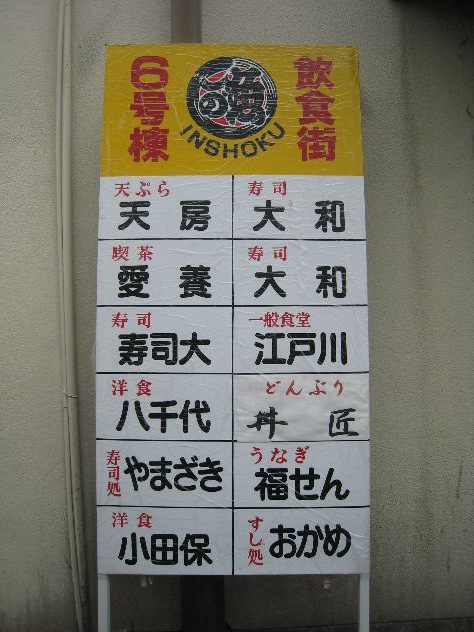 6号棟
飲食街
INSHOKU
天ぷら
天房
寿司
大和
喫茶
愛養
寿司
大和
寿司
寿司大
一般食堂
江戸川
洋食
八千代
どんぶり
丼匠
寿司処
やまざき
うなぎ
福せん
洋食
小田保
すし処
おかめ